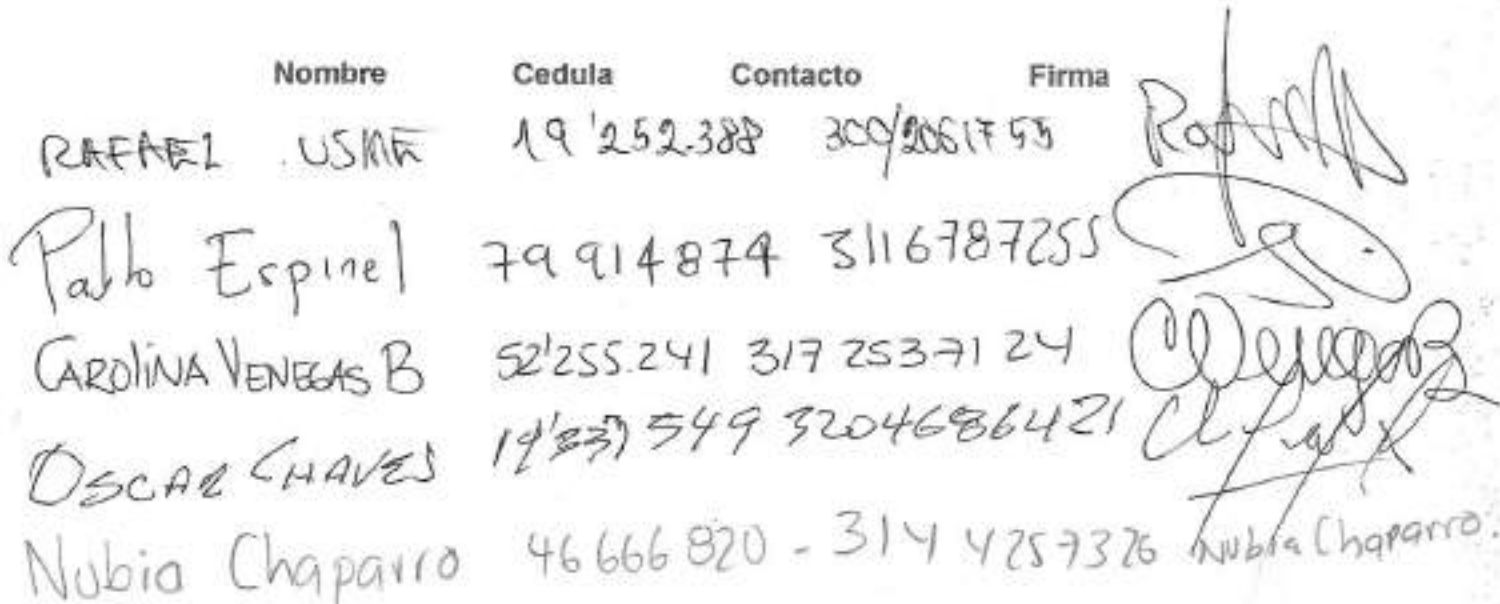 Nombre Cedula Contacto Firma
RAFAEL USME 19'252.388 300/2061755
Pablo Espinel 79 914 874 3116787255
CAROLINA VENEGAS B 52'255.241 317 25371 24 CVenegasB
OSCAR CHAVES 549 3204686421
Nubia Chaparro 46 666 820 - 314 4257326 Nubia Chaparro.